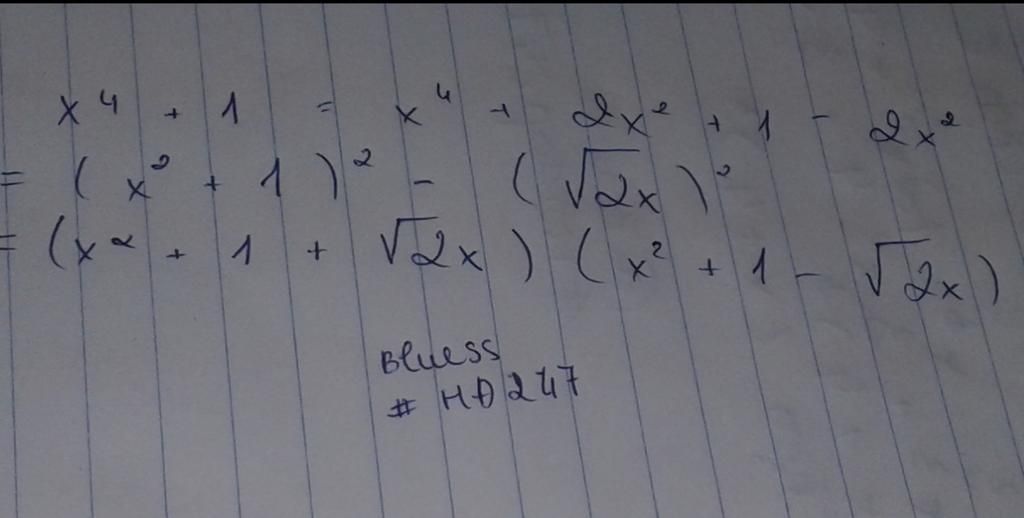 x⁴ + 1 = x⁴ + 2x² + 1 - 2x²
= (x² + 1)² - (√2x)²
= (x² + 1 + √2x) (x² + 1 - √2x)
Bluess
# HĐ247